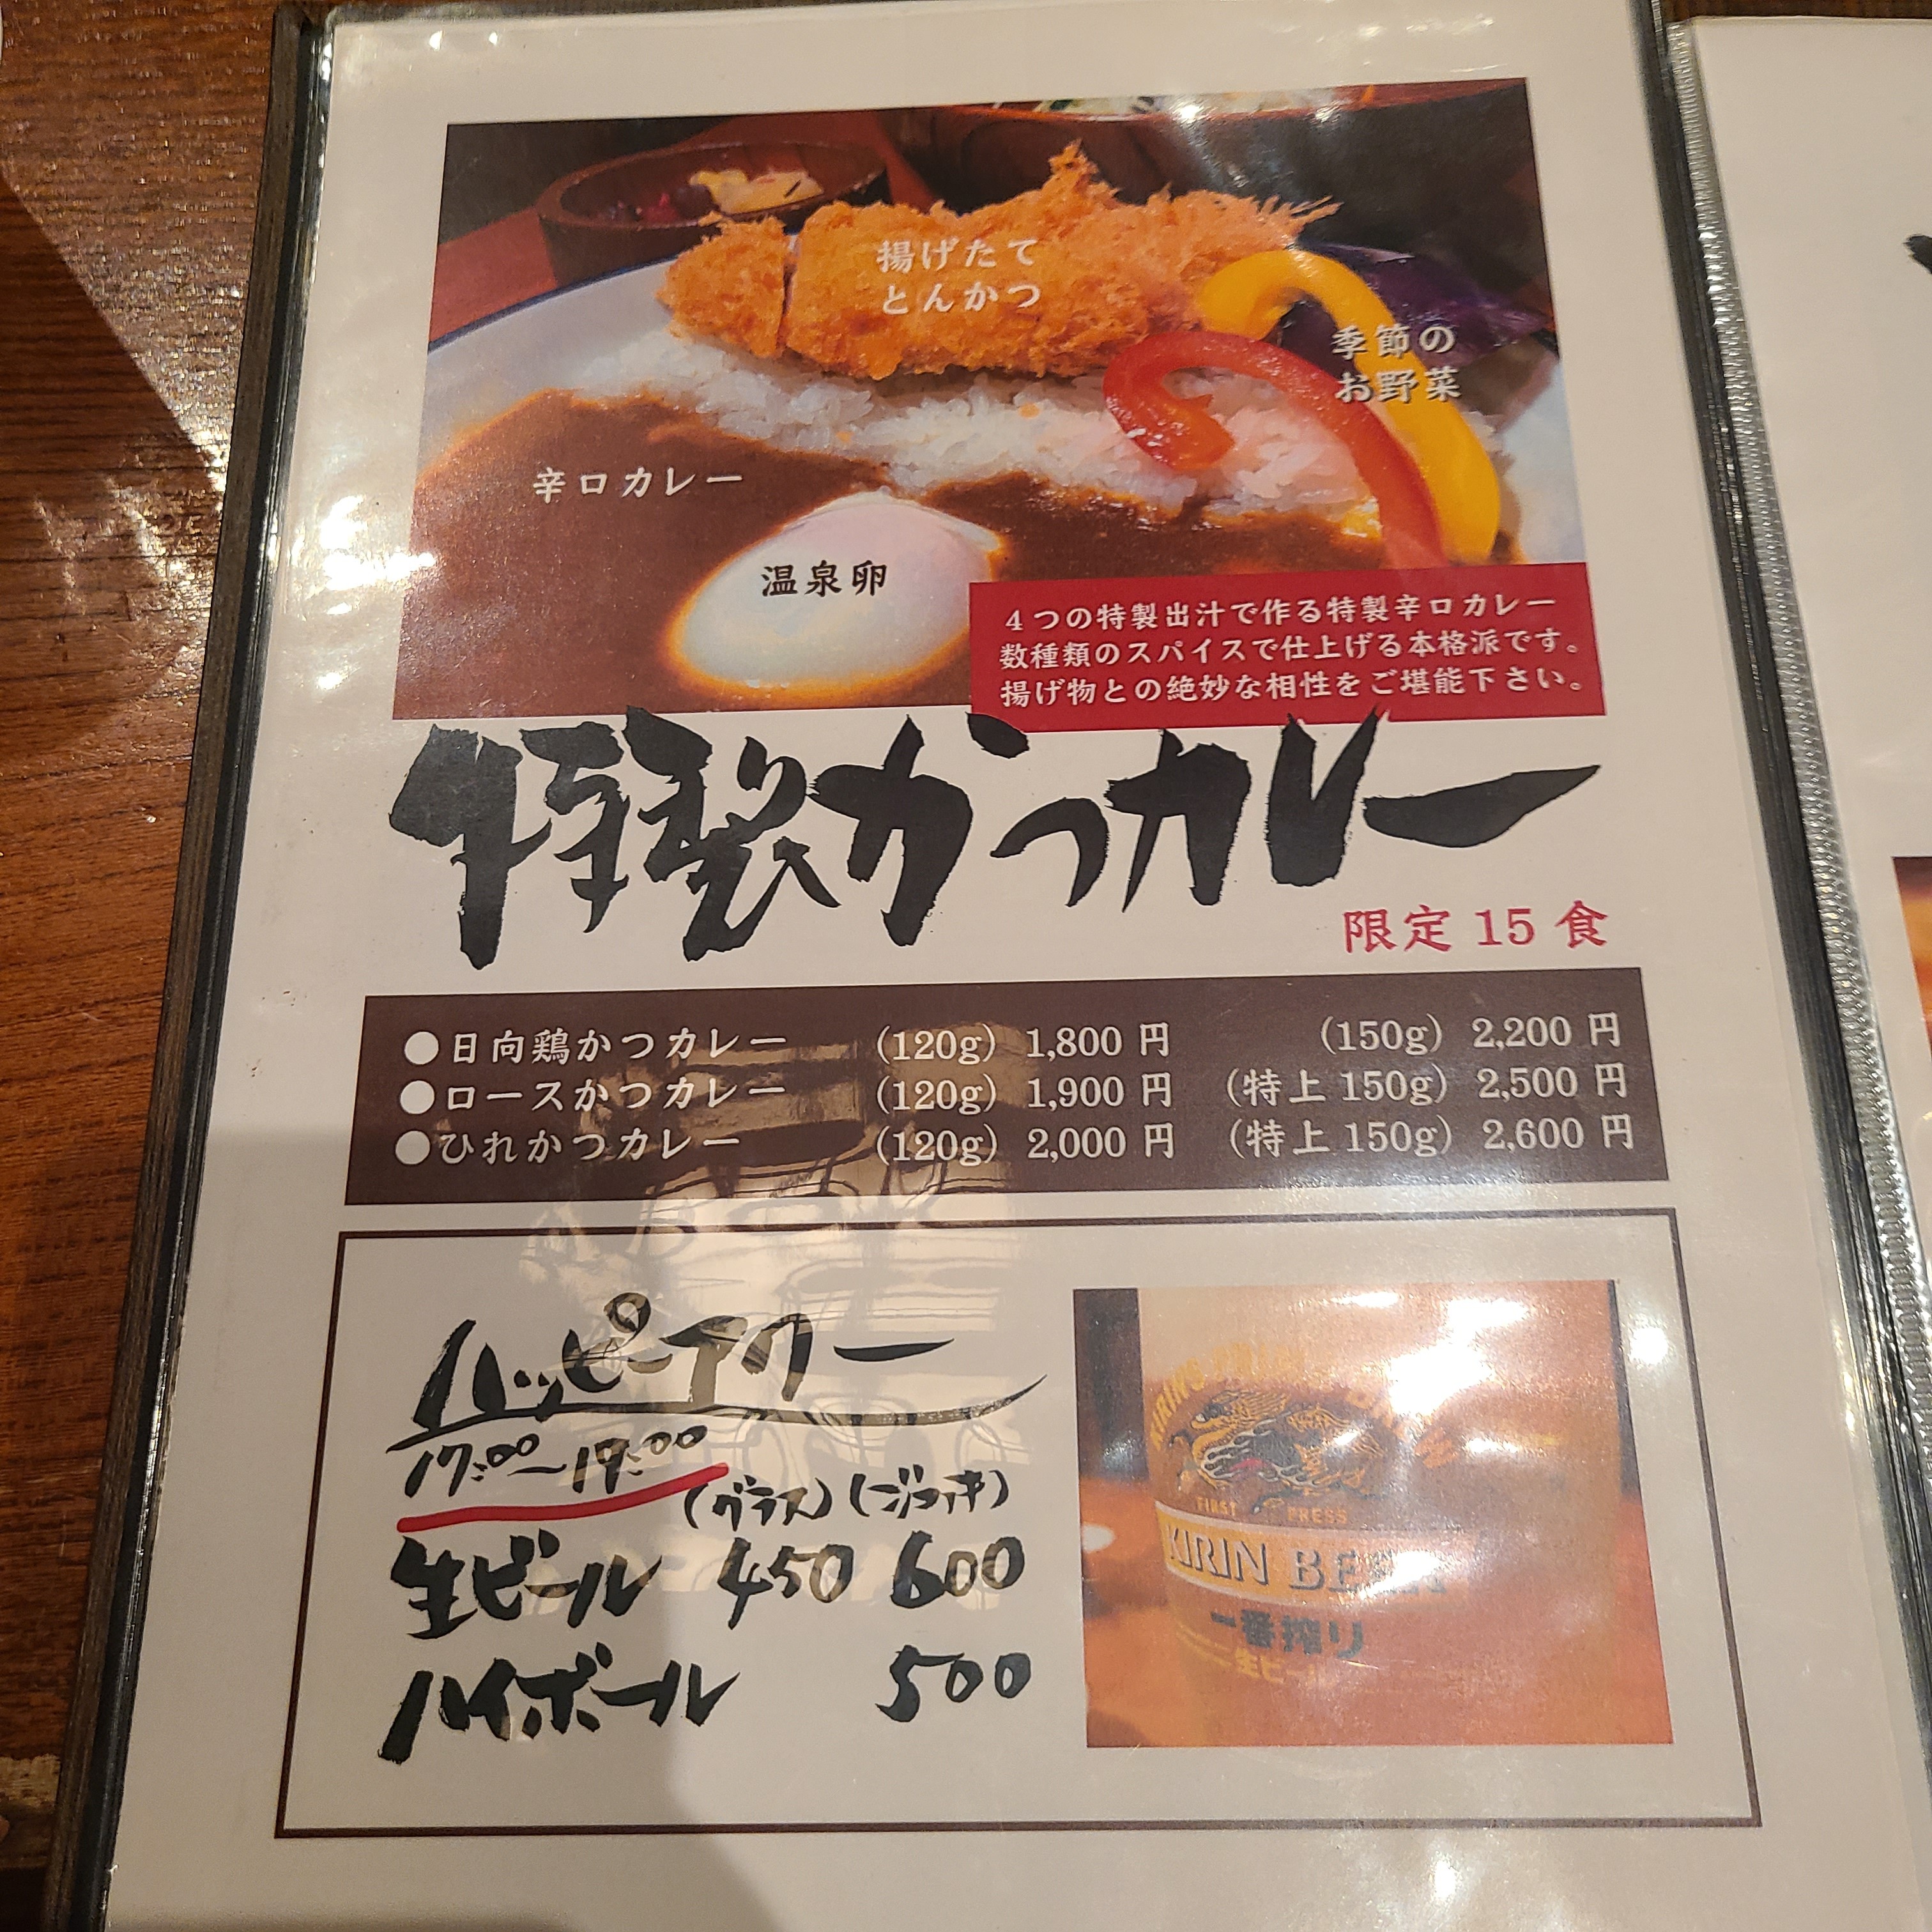 揚げたて
とんかつ
季節の
お野菜
辛口カレー
温泉卵
4つの特製出汁で作る特製辛口カレー
数種類のスパイスで仕上げる本格派です。
揚げ物との絶妙な相性をご堪能下さい。
特製かつカレー
限定 15 食
●日向鶏かつカレー (120g) 1,800 円 (150g) 2,200 円
●ロースかつカレー (120g) 1,900 円 (特上 150g) 2,500 円
●ひれかつカレー (120g) 2,000 円 (特上 150g) 2,600 円
ハッピーアワー
17:00~19:00
(グラス) (ジョッキ)
生ビール 450 600
ハイボール 500
FIRST PRESS
KIRIN BEER
一番搾り